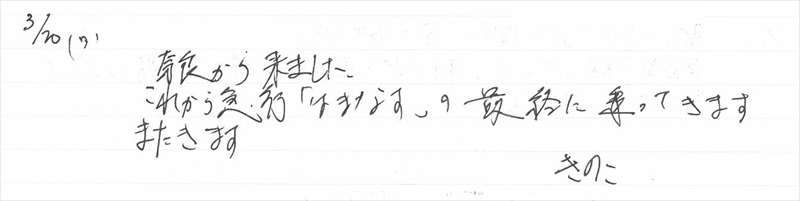 3/20(日)
奈良から来ました。
これから急行「はまなす」の最終に乗ってきます
またきます
きのこ